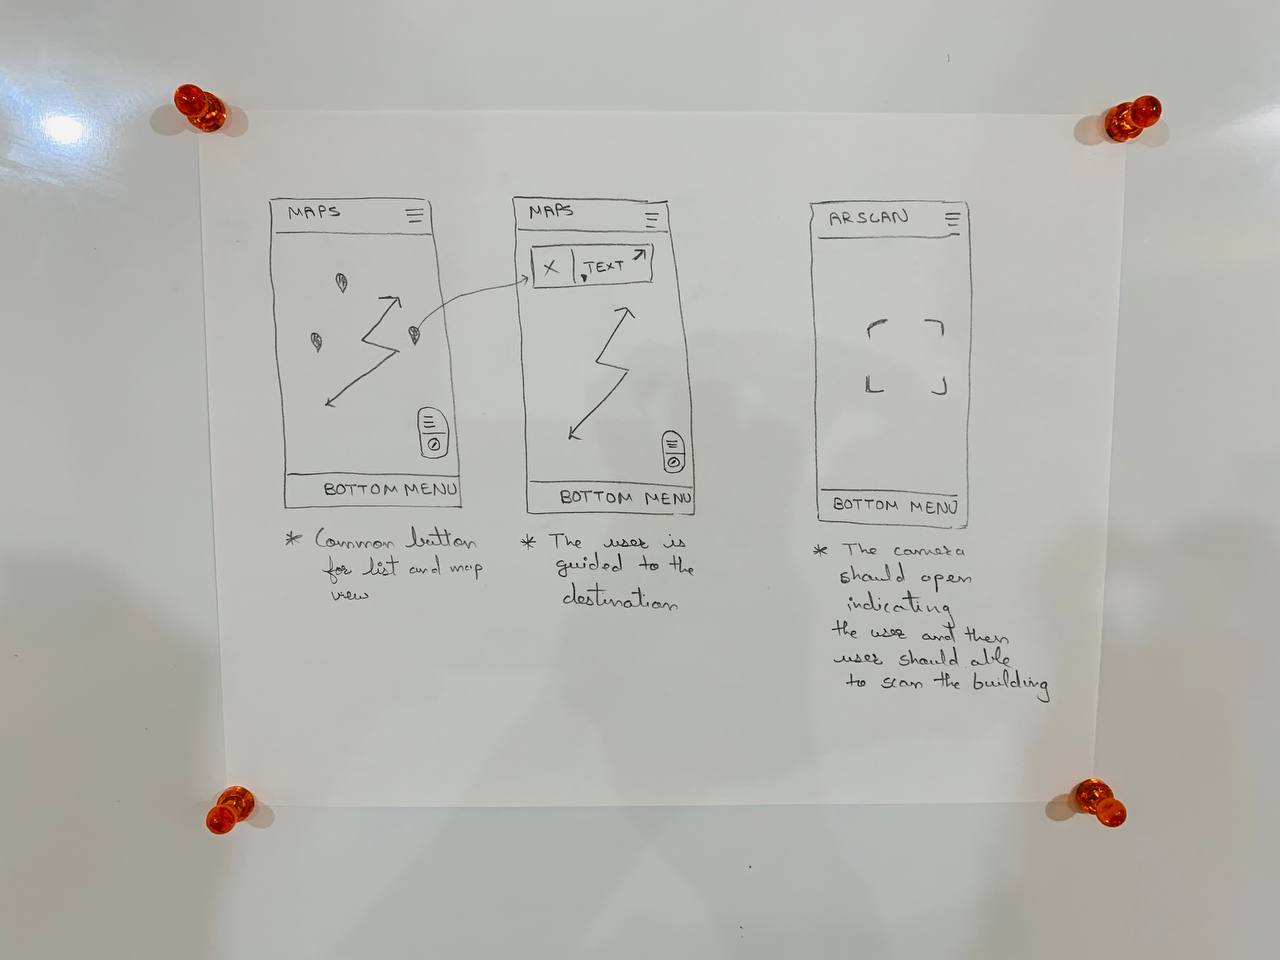 MAPS
BOTTOM MENU
* Common button
for list and map
view
MAPS
X TEXT
BOTTOM MENU
* The user is
guided to the
destination
ARSCAN
BOTTOM MENU
* The camera
should open
indicating
the user and then
user should able
to scan the building